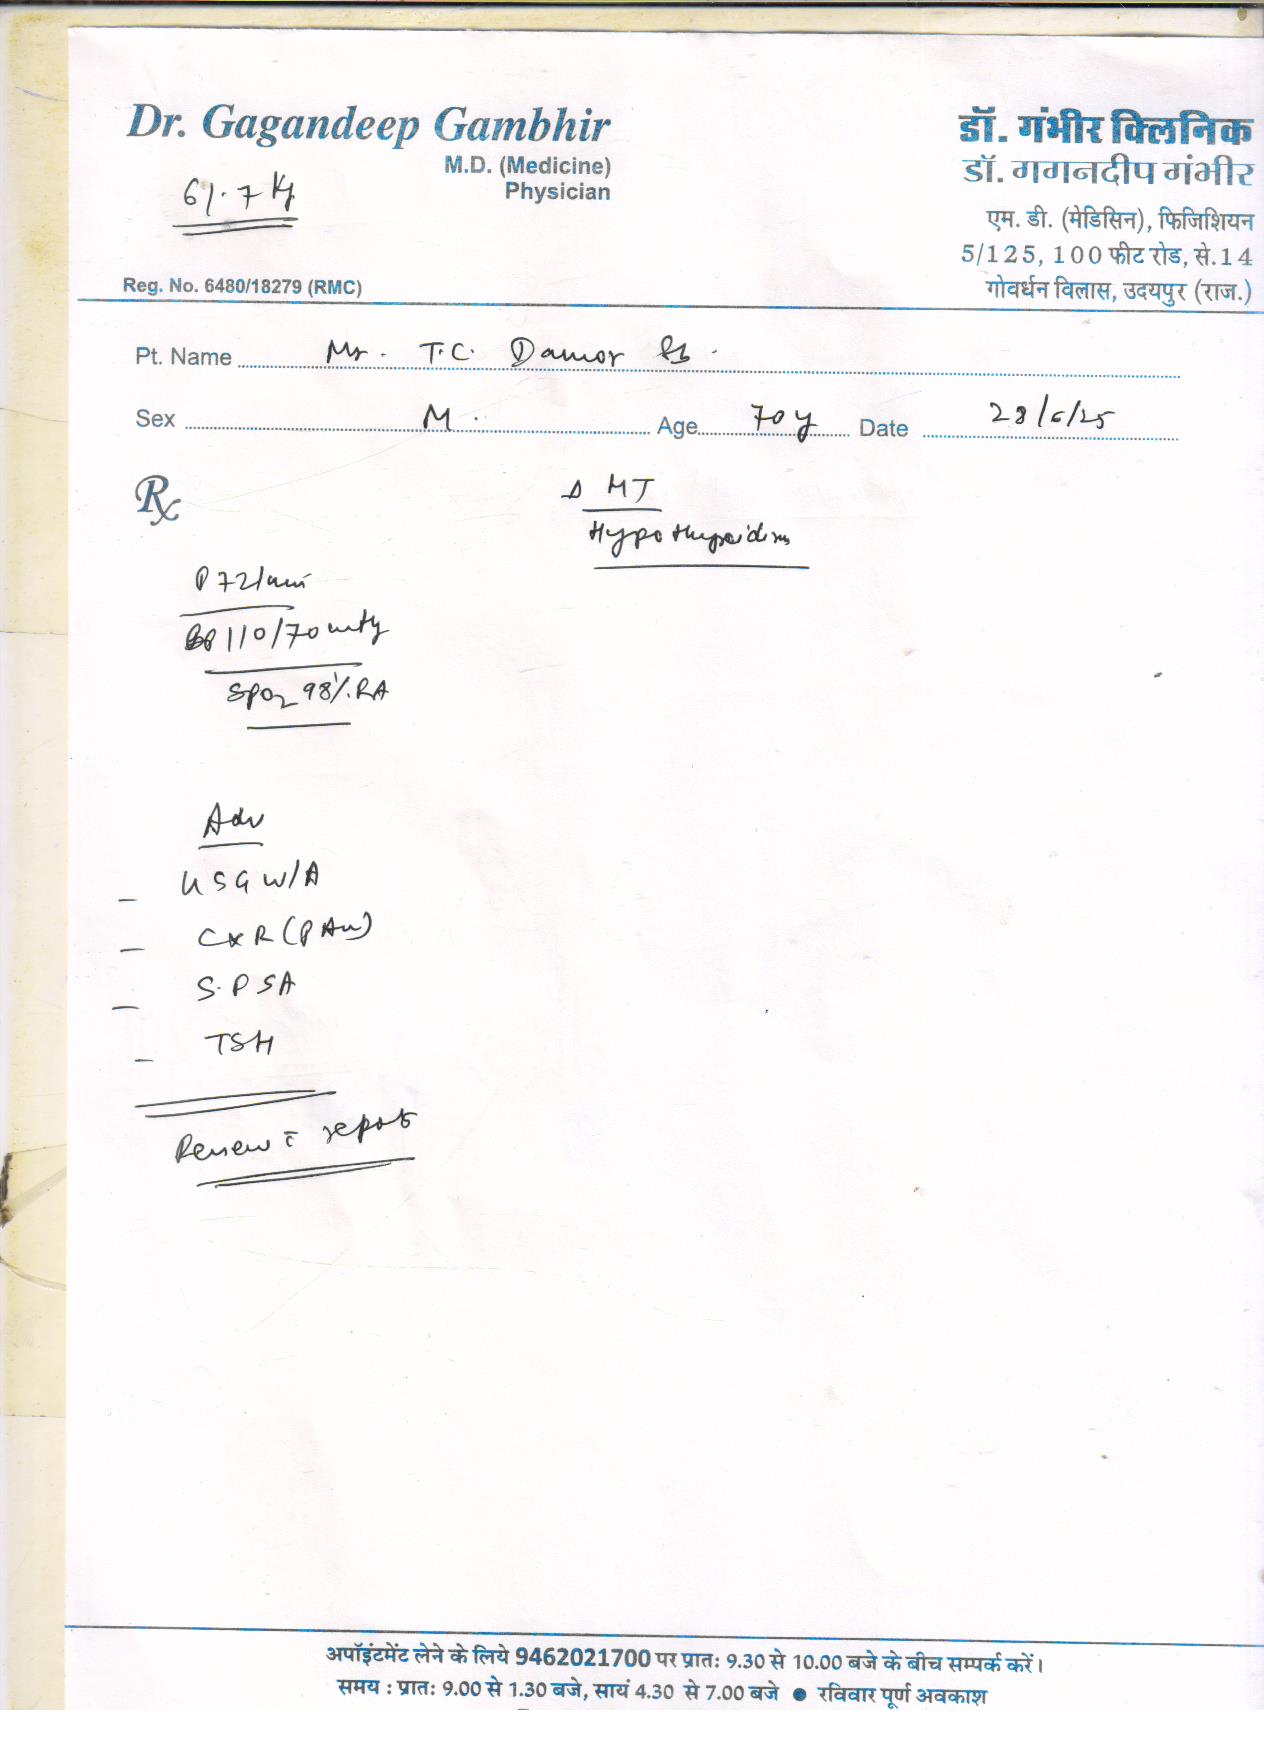 Dr. Gagandeep Gambhir
M.D. (Medicine)
Physician
61.7 Kg
Reg. No. 6480/18279 (RMC)
डॉ. गंभीर क्लिनिक
डॉ. गगनदीप गंभीर
एम. डी. (मेडिसिन), फिजिशियन
5/125, 100 फीट रोड, से.14
गोवर्धन विलास, उदयपुर (राज.)
Pt. Name Mr. T.C. Damor
Sex M. Age 70y Date 28/6/25
Rx
Hypothyroidism
P 72/min
BP 110/70 mmHg
SpO2 98% RA
Adv
- USG W/A
- CXR (PAv)
- S. PSA
- TSH
Review c̄ reports
अपॉइंटमेंट लेने के लिये 9462021700 पर प्रातः 9.30 से 10.00 बजे के बीच सम्पर्क करें।
समय : प्रातः 9.00 से 1.30 बजे, सायं 4.30 से 7.00 बजे ● रविवार पूर्ण अवकाश